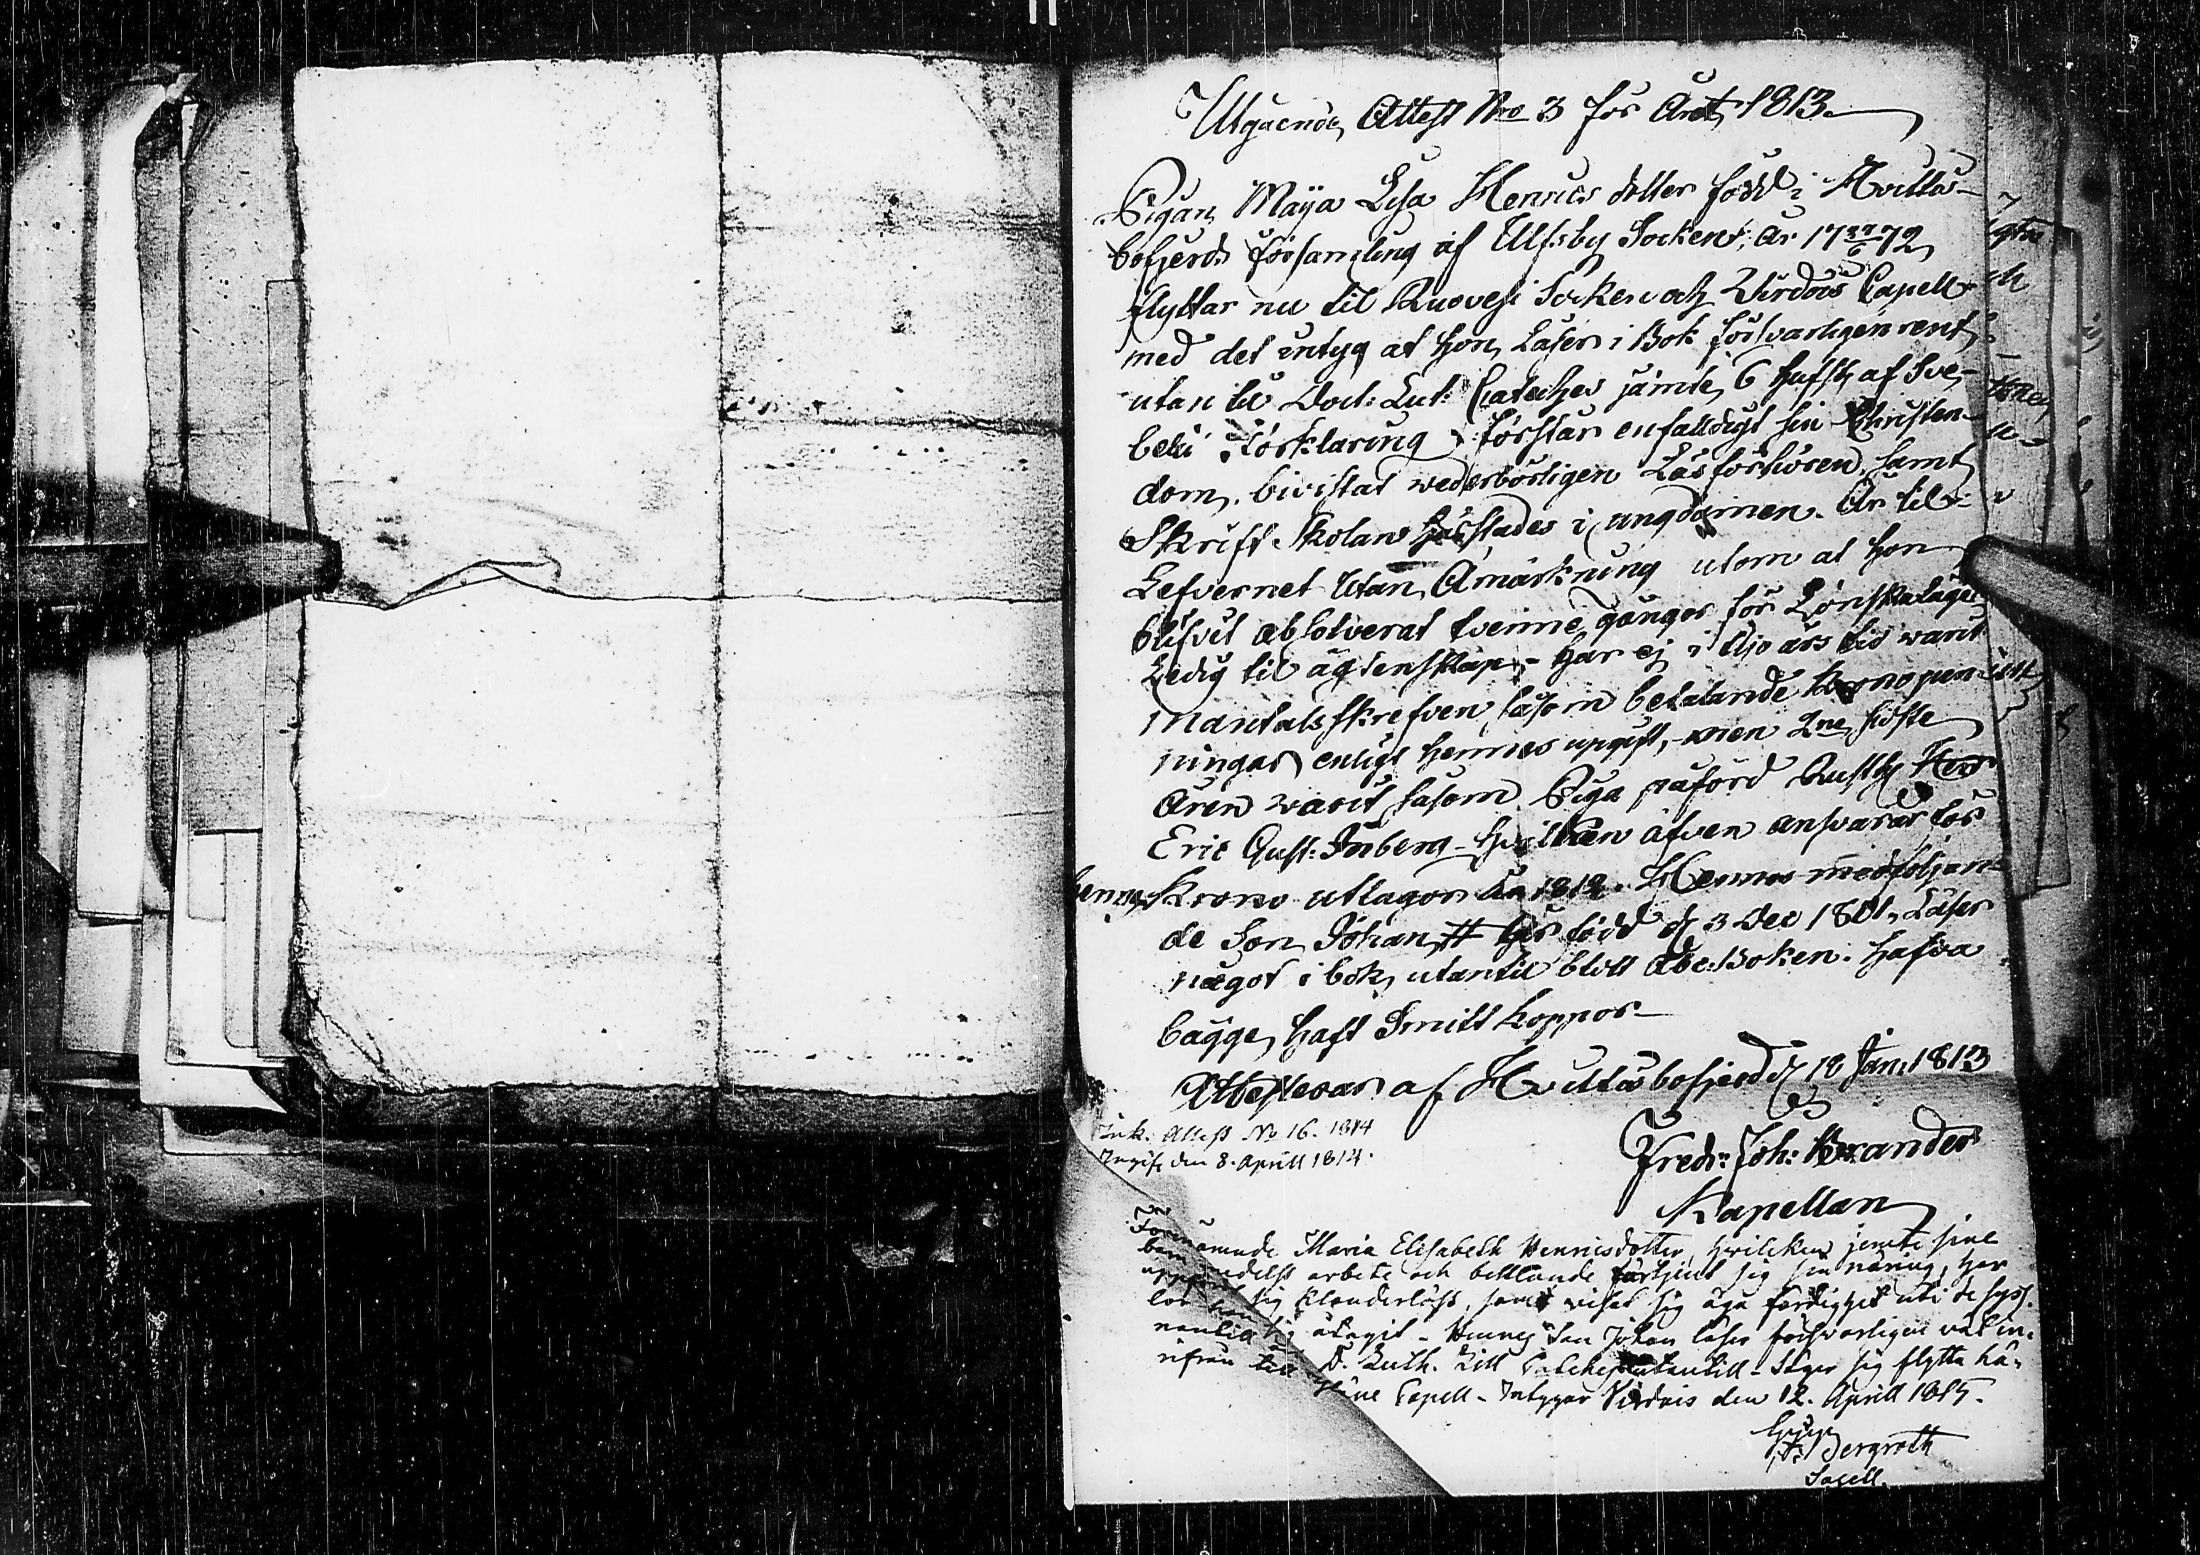 Utgående Attest No 3 för Året 1813
Pigan Maija Lisa Henrics dotter född i Hvittis-
bofjerds församling af Ulfsby Socken, år 1772
flyttar nu til Ruovesi Socken och Virdois Capell
med det intyg at hon Läser i Bok försvarligen rent
utan til Doct: Lut: Cateches jämte 6 Hufst af Sve-
belii Förklaring, förstår enfaldigt sin Christen-
dom, bivistat wederbörligen Läsförhören, samt
Skrift Skolan städes i ungdomen. Är til
Lefvernet Utan Anmärkning utom at hon
blifvit absolverat tvenne gånger för Lönskaläger
Ledig til ägtenskap - har ej i tijo års tid warit
Mantalsskrefven såsom betalande Krono pen-
ningar enligt hennes upgift, men 2ne sidste
åren warit såsom Piga påförd Rusth
Eric Gust: Inberg - hvilken äfven ansvarar för
hennes Krono utlagor År 1812. Hennes medföljan-
de Son Johan född d 3 Dec 1801, Läser
något i bok, utantil blott Abc:Boken. Hafva
bägge haft Smitt koppor
Attesteras af Hvittisbofjerd d 18 Jan: 1813
Fredr: Joh: Brander
Kapellan
Ink. Attest No 16. 1814
Ingifv. den 8. Aprill 1814.
Förenämnde Maria Elisabeth Henricsdotter, hvilcken jemte sine
barn medelst arbete och bettlande förtjent sig sin näring, har
uppfördt sig klanderlöst, samt viset sig äga färdighet uti de syss-
lor hon sig åtagit - Hennes Son Johan läser försvarligen väl in-
nantill D. Luth. Lill Cateches utantill - Säger sig flytta hä-
rifrån till Capell - Intygar Virdois den 12. Aprill 1815.
Bergroth
Sacell.